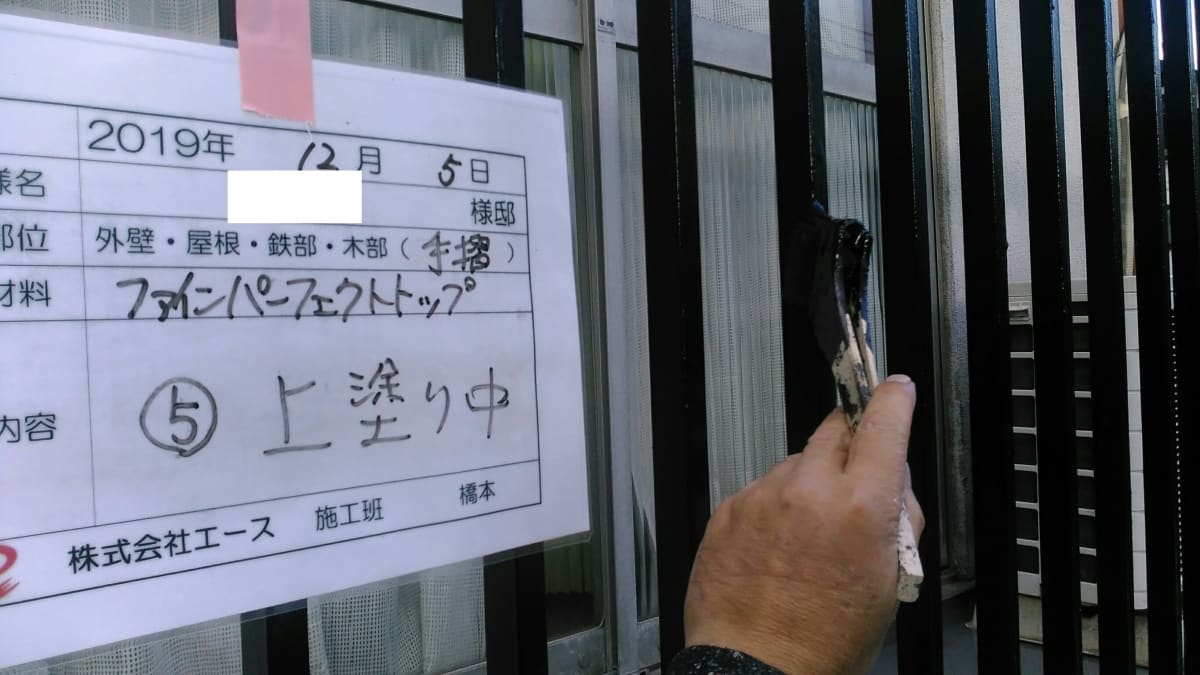 2019年 12月 5日
様名
様邸
部位 外壁・屋根・鉄部・木部(手摺)
材料 ファインパーフェクトトップ
内容 ⑤ 上塗り中
株式会社エース 施工班 橋本